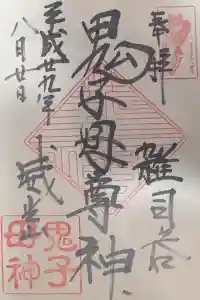 奉拝
雑司谷
鬼子母尊神
平成廿九年
八月廿日
威光山
鬼子
母神